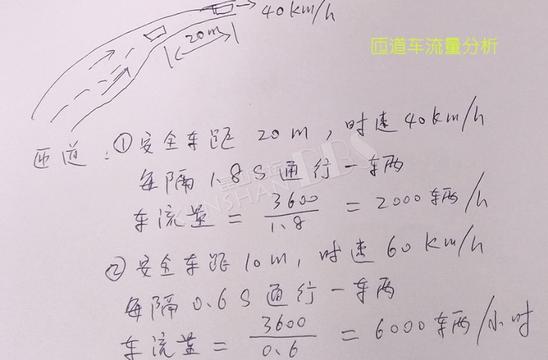 40km/h
20m
匝道车流量分析
匝道:①安全车距 20m,时速40km/h
每隔1.8S通行一车两
车流量=3600/1.8=2000车两/h
②安全车距10m,时速60km/h
每隔0.6S通行一车两
车流量=3600/0.6=6000车两/小时